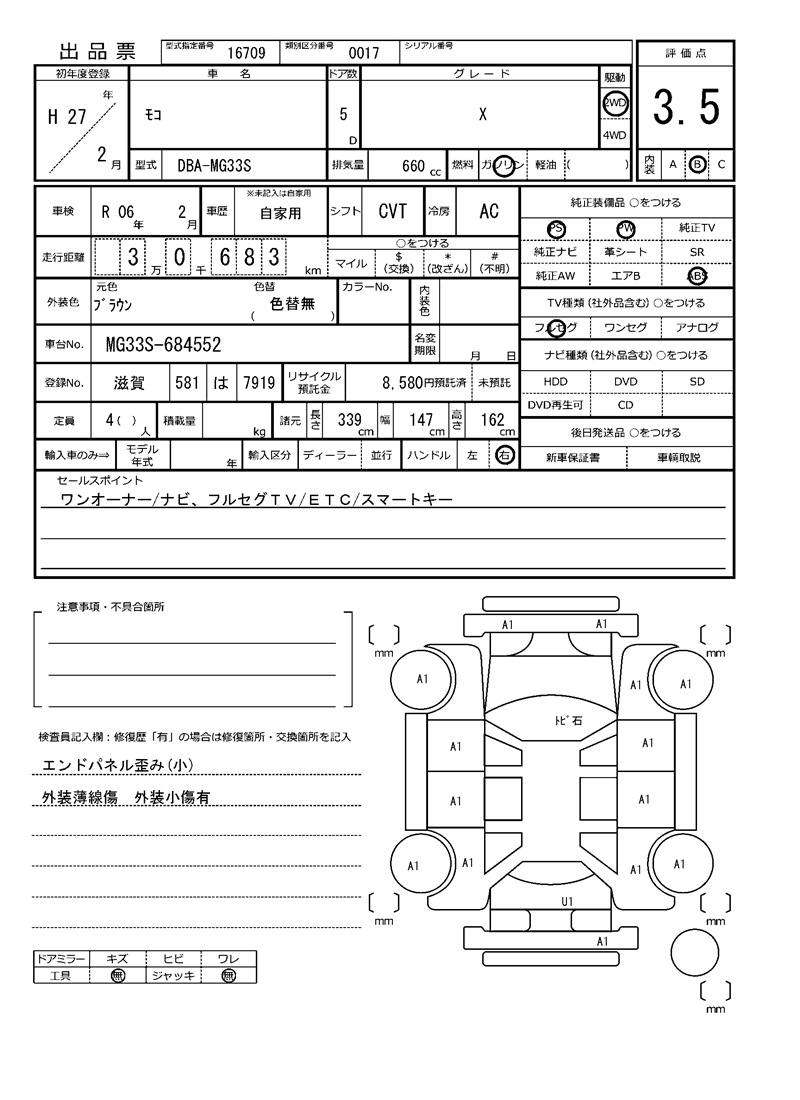 出品票 型式指定番号 16709 類別区分番号 0017 シリアル番号
評価点
3.5
内装 A B C
初年度登録 車名 ドア数 グレード 駆動
H 27 年 2 月 ﾓｺ 5 D X 2WD 4WD
型式 DBA-MG33S 排気量 660 cc 燃料 ガソリン 軽油 ( )
車検 R 06 年 2 月 車歴 ※未記入は自家用 自家用 シフト CVT 冷房 AC
走行距離 3 万 0 千 6 8 3 km ○をつける
マイル $(交換) *(改ざん) #(不明)
外装色 元色 ﾌﾞﾗｳﾝ 色替 ( 色替無 ) カラーNo. 内装色
車台No. MG33S-684552 名変期限 月 日
登録No. 滋賀 581 は 7919 リサイクル預託金 8,580円預託済 未預託
定員 4( ) 人 積載量 kg 諸元 長さ 339 cm 幅 147 cm 高さ 162 cm
輸入車のみ⇒ モデル年式 年 輸入区分 ディーラー 並行 ハンドル 左 右
純正装備品 ○をつける
PS PW 純正TV
純正ナビ 革シート SR
純正AW エアB ABS
TV種類(社外品含む) ○をつける
フルセグ ワンセグ アナログ
ナビ種類 (社外品含む) ○をつける
HDD DVD SD
DVD再生可 CD
後日発送品 ○をつける
新車保証書 車輌取説
セールスポイント
ワンオーナー/ナビ、フルセグTV/ETC/スマートキー
注意事項・不具合箇所
検査員記入欄：修復歴「有」の場合は修復箇所・交換箇所を記入
エンドパネル歪み(小)
外装薄線傷 外装小傷有
ドアミラー キズ ヒビ ワレ
工具 無 ジャッキ 無
A1 A1
mm mm
A1 A1 A1
ﾄﾋﾞ石
A1 A1
A1 A1
A1 A1 A1 A1
U1
mm mm
A1
mm